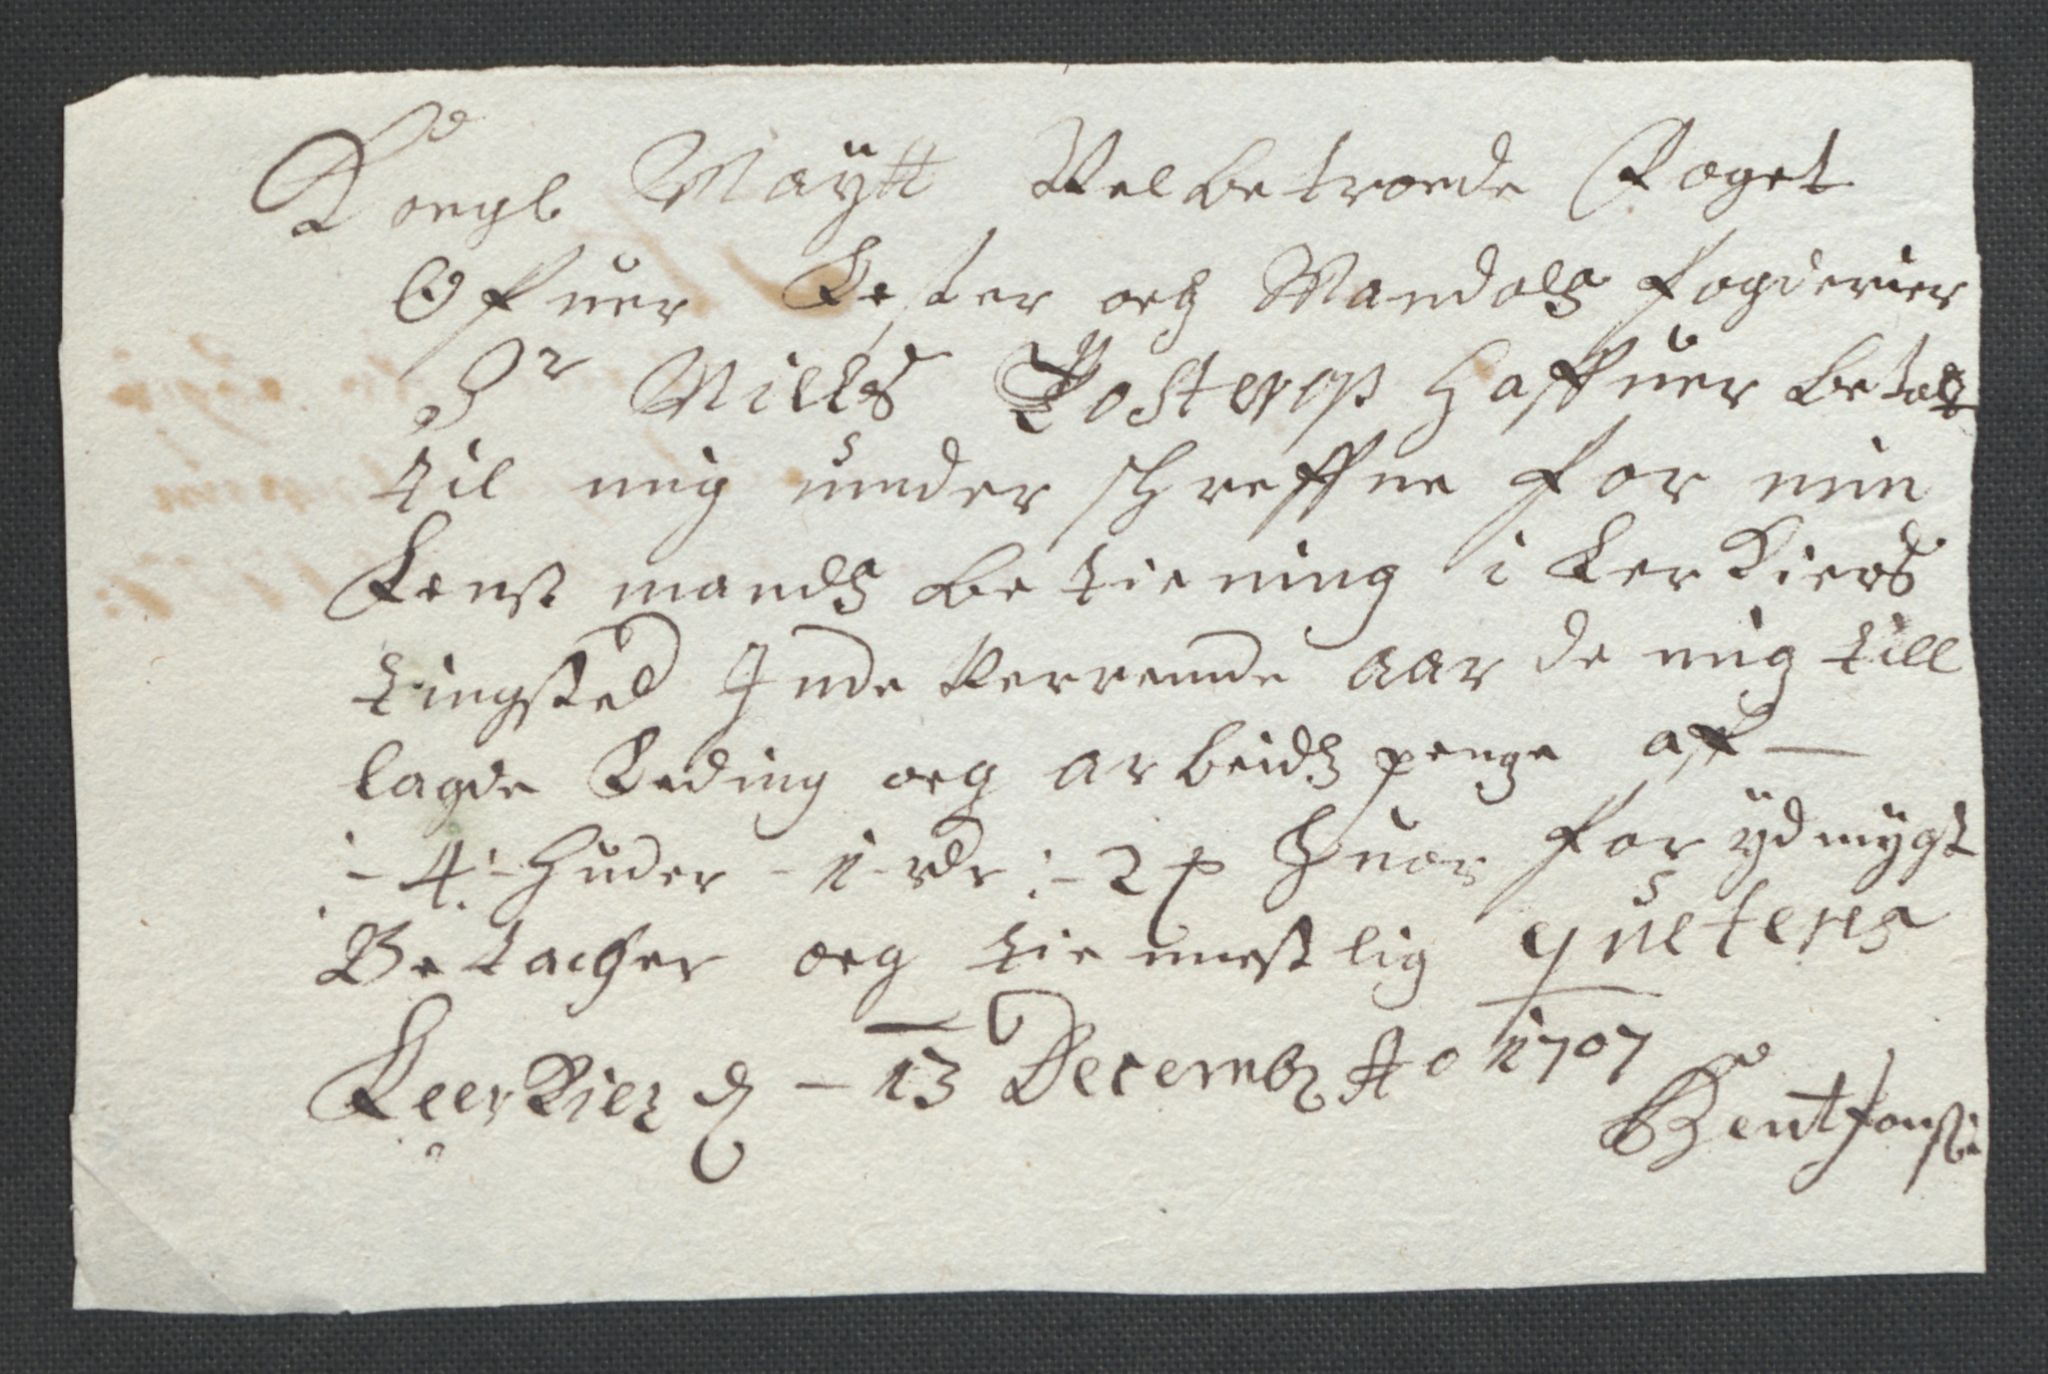 Kongl Maÿtt Velbetroede Foget
Ofuer Lester oeg Mandals fogderier
Sr Nills Posterop haffuer betalt
til mig under schreffne for min
Lenst mands betiening i Leer Kiers
tingsted Inde verrende aar de mig till
lagde Leding oeg arbeids penge aff —
:- 4 :- huder - 1 rdr :- 2 ß huor for ÿdmygst
Betacher oeg tiennestlig quiterer
Leer Kier d - 13 Decembr Ao 1707
Bent Jonsen